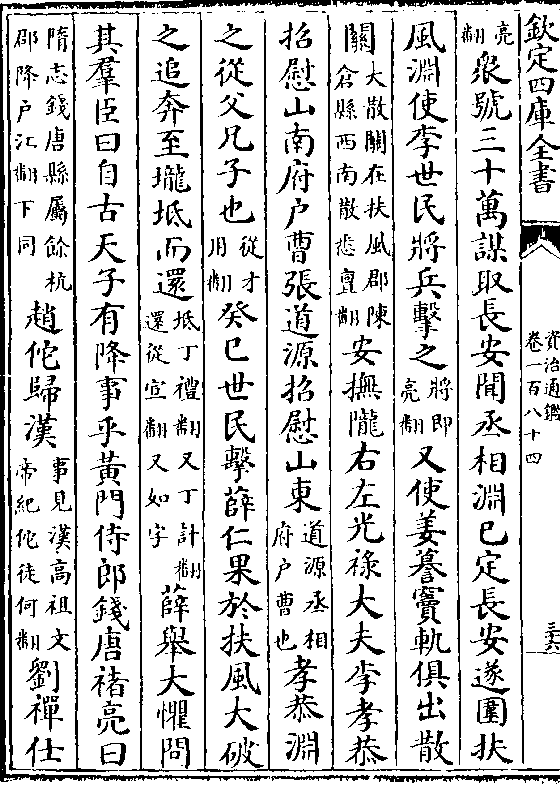 欽定四庫全書
資治通鑑
卷一百八十四
三六
亮
翻
衆號三十萬謀取長安聞丞相淵已定長安遂圍扶
風淵使李世民將兵擊之
將即
亮翻
又使姜謩竇軌俱出散
關
大散關在扶風郡陳
倉縣西南散悉亶翻
安撫隴右左光祿大夫李孝恭
招慰山南府户曹張道源招慰山東
道源丞相
府户曹也
孝恭淵
之從父兄子也
從才
用翻
癸巳世民擊薛仁果於扶風大破
之追奔至壠坻而還
坻丁禮翻又丁計翻
還從宣翻又如字
薛舉大懼問
其羣臣曰自古天子有降事乎黃門侍郎錢唐褚亮曰
隋志錢唐縣屬餘杭
郡降户江翻下同
趙佗歸漢
事見漢高祖文
帝紀佗徒何翻
劉禪仕